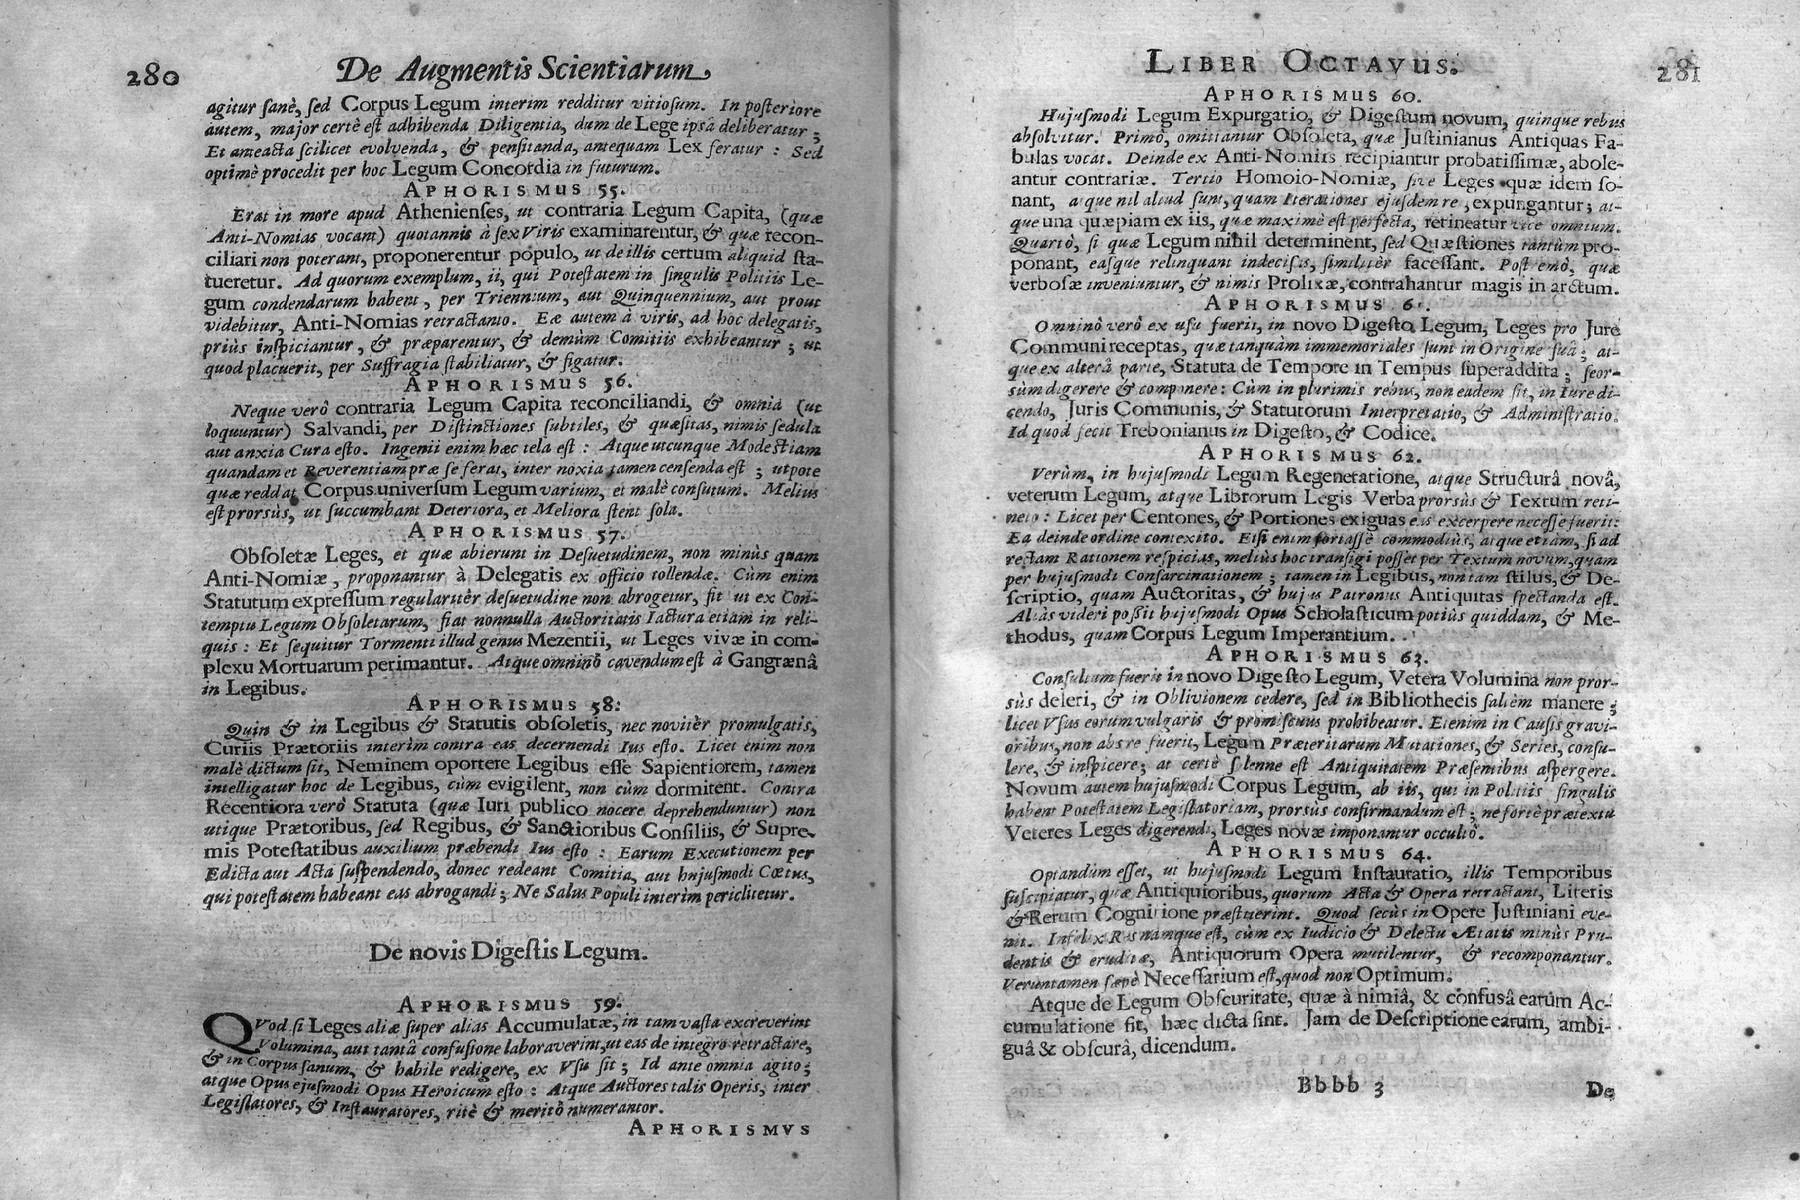 280
De Augmentis Scientiarum
agitur sanè, sed Corpus Legum interim redditur vitiosum. In posteriore
autem, major certè est adhibenda Diligentia, dum de Lege ipsâ deliberatur;
Et anteacta scilicet evolvenda, & pensitanda, antequam Lex feratur: Sed
optimè procedit per hoc Legum Concordia in futurum.
APHORISMUS 55.
Erat in more apud Athenienses, ut contraria Legum Capita, (quæ
Anti-Nomias vocant) quotannis à sex Viris examinarentur, & quæ recon-
ciliari non poterant, proponerentur populo, ut de illis certum aliquid sta-
tueretur. Ad quorum exemplum, ii, qui Potestatem in singulis Politiis Le-
gum condendarum habent, per Triennium, aut Quinquennium, aut prout
videbitur, Anti-Nomias retractanto. Eæ autem à viris, ad hoc delegatis,
priùs inspiciantur, & præparentur, & demùm Comitiis exhibeantur; ut
quod placuerit, per Suffragia stabiliatur, & figatur.
APHORISMUS 56.
Neque verò contraria Legum Capita reconciliandi, & omnia (ut
loquuntur) Salvandi, per Distinctiones subtiles, & quæsitas, nimis sedula
aut anxia Cura esto. Ingenii enim hæc tela est: Atque utcunque Modestiam
quandam et Reverentiam præ se ferat, inter noxia tamen censenda est; utpote
quæ reddat Corpus universum Legum varium, et malè consutum. Melius
est prorsùs, ut succumbant Deteriora, et Meliora stent sola.
APHORISMUS 57.
Obsoletæ Leges, et quæ abierunt in Desuetudinem, non minùs quam
Anti-Nomiæ, proponantur à Delegatis ex officio tollendæ. Cùm enim
Statutum expressum regularitèr desuetudine non abrogetur, fit ut ex Con-
temptu Legum Obsoletarum, fiat nonnulla Auctoritatis Iactura etiam in reli-
quis: Et sequitur Tormenti illud genus Mezentii, ut Leges vivæ in com-
plexu Mortuarum perimantur. Atque omninò cavendum est à Gangrænâ
in Legibus.
APHORISMUS 58:
Quin & in Legibus & Statutis obsoletis, nec novitèr promulgatis,
Curiis Prætoriis interim contra eas decernendi Ius esto. Licet enim non
malè dictum sit, Neminem oportere Legibus esse Sapientiorem, tamen
intelligatur hoc de Legibus, cùm evigilent, non cùm dormitent. Contra
Recentiora verò Statuta (quæ Iuri publico nocere deprehenduntur) non
utique Prætoribus, sed Regibus, & Sanctioribus Consiliis, & Supre-
mis Potestatibus auxilium præbendi Ius esto: Earum Executionem per
Edicta aut Acta suspendendo, donec redeant Comitia, aut hujusmodi Cœtus,
qui potestatem habeant eas abrogandi; Ne Salus Populi interim periclitetur.
De novis Digestis Legum.
APHORISMUS 59.
QVod si Leges aliæ super alias Accumulatæ, in tam vasta excreverint
Volumina, aut tantâ confusione laboraverint, ut eas de integro retractare,
& in Corpus sanum, & habile redigere, ex Vsu sit; Id ante omnia agito;
atque Opus ejusmodi Opus Heroicum esto: Atque Auctores talis Operis, inter
Legislatores, & Instauratores, ritè & meritò numerantor.
APHORISMVS
LIBER OCTAVUS.
281
APHORISMUS 60.
Hujusmodi Legum Expurgatio, & Digestum novum, quinque rebus
absolvitur. Primò, omittantur Obsoleta, quæ Justinianus Antiquas Fa-
bulas vocat. Deinde ex Anti-Nomiis recipiantur probatissimæ, abole-
antur contrariæ. Tertio Homoio-Nomiæ, sive Leges quæ idem so-
nant, atque nil aliud sunt, quam Iterationes ejusdem re, expungantur; at-
que una quæpiam ex iis, quæ maximè est perfecta, retineatur vice omnium.
Quartò, si quæ Legum nihil determinent, sed Quæstiones tantùm pro-
ponant, easque relinquant indecisas, similitèr facessant. Postremò, quæ
verbosæ inveniuntur, & nimis Prolixæ, contrahantur magis in arctum.
APHORISMUS 6.
Omninò verò ex usu fuerit, in novo Digesto Legum, Leges pro Jure
Communi receptas, quæ tanquàm immemoriales sunt in Origine suâ; at-
que ex alterâ parte, Statuta de Tempore in Tempus superaddita; seor-
sùm digerere & componere: Cùm in plurimis rebus, non eadem sit, in Iure di-
cendo, Juris Communis, & Statutorum Interpretatio, & Administratio.
Id quod fecit Trebonianus in Digesto, & Codice.
APHORISMUS 62.
Verùm, in hujusmodi Legum Regeneratione, atque Structurâ novâ,
veterum Legum, atque Librorum Legis Verba prorsùs & Textum reti-
neto: Licet per Centones, & Portiones exiguas eas excerpere necesse fuerit:
Ea deinde ordine contexito. Etsi enim fortassè commodiùs, atque etiam, si ad
rectam Rationem respicias, meliùs hoc transigi posset per Textum novum, quam
per hujusmodi Consarcinationem; tamen in Legibus, non tam stilus, & De-
scriptio, quam Auctoritas, & hujus Patronus Antiquitas spectanda est.
Aliàs videri possit hujusmodi Opus Scholasticum potiùs quiddam, & Me-
thodus, quam Corpus Legum Imperantium.
APHORISMUS 63.
Consultum fuerit in novo Digesto Legum, Vetera Volumina non pror-
sùs deleri, & in Oblivionem cedere, sed in Bibliothecis saltèm manere;
licet Vsus eorum vulgaris & promiscuus prohibeatur. Etenim in Causis gravi-
oribus, non abs re fuerit, Legum Præteritarum Mutationes, & Series, consu-
lere, & inspicere; at certè slenne est Antiquitatem Præsentibus aspergere.
Novum autem hujusmodi Corpus Legum, ab iis, qui in Politiis singulis
habent Potestatem Legislatoriam, prorsùs confirmandum est; ne fortè prætextu
Veteres Leges digerendi, Leges novæ imponantur occultò.
APHORISMUS 64.
Optandum esset, ut hujusmodi Legum Instauratio, illis Temporibus
suscipiatur, quæ Antiquioribus, quorum Acta & Opera retractant, Literis
& Rerum Cognitione præstiterint. Quod secùs in Opere Justiniani eve-
nit. Infelix Res namque est, cùm ex Iudicio & Delectu Ætatis minùs Pru-
dentis & eruditæ, Antiquorum Opera mutilentur, & recomponantur.
Veruntamen sæpè Necessarium est, quod non Optimum.
Atque de Legum Obscuritate, quæ à nimiâ, & confusâ earum Ac-
cumulatione fit, hæc dicta sint. Jam de Descriptione earum, ambi-
guâ & obscurâ, dicendum.
Bbbb 3
De